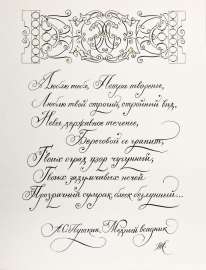 Люблю тебя, Петра творенье,
Люблю твой строгий, стройный вид,
Невы державное теченье,
Береговой ее гранит,
Твоих оград узор чугунный,
Твоих задумчивых ночей
Прозрачный сумрак, блеск безлунный...
А.С.Пушкин, Медный всадник